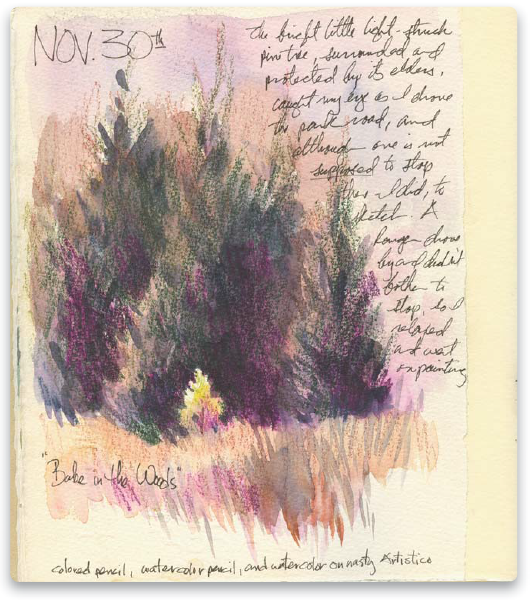 NOV. 30th
the bright little light-struck
pine tree, surrounded and
protected by its elders,
caught my eye as I drove
the park road, and
although one is not
supposed to stop
there I did, to
sketch. A
Ranger drove
by and didn't
bother to
stop, so I
relaxed
and went
on painting
"Babe in the Woods"
colored pencil, watercolor pencil, and watercolor on nasty Artistico